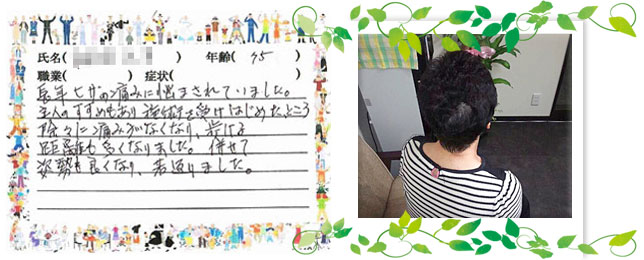 氏名( ) 年齢( 75 )
職業( ) 症状( )
長年七サの痛みに悩まされていました。
主人のすすめもあり施術を受けはじめたところ
徐々に痛みがなくなり、歩ける
距離も多くなりました。併せて
姿勢も良くなり、若返りました。